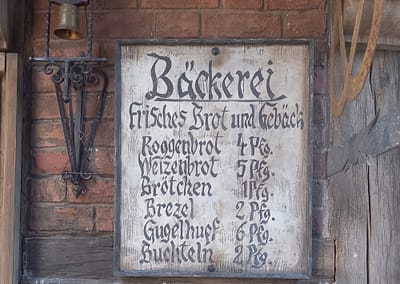 Bäckerei
Frisches Brot und Gebäck
Roggenbrot 4 Pfg.
Weizenbrot 5 Pfg.
Brötchen 1 Pfg.
Brezel 2 Pfg.
Gugelhupf 6 Pfg.
Buchteln 2 Pfg.